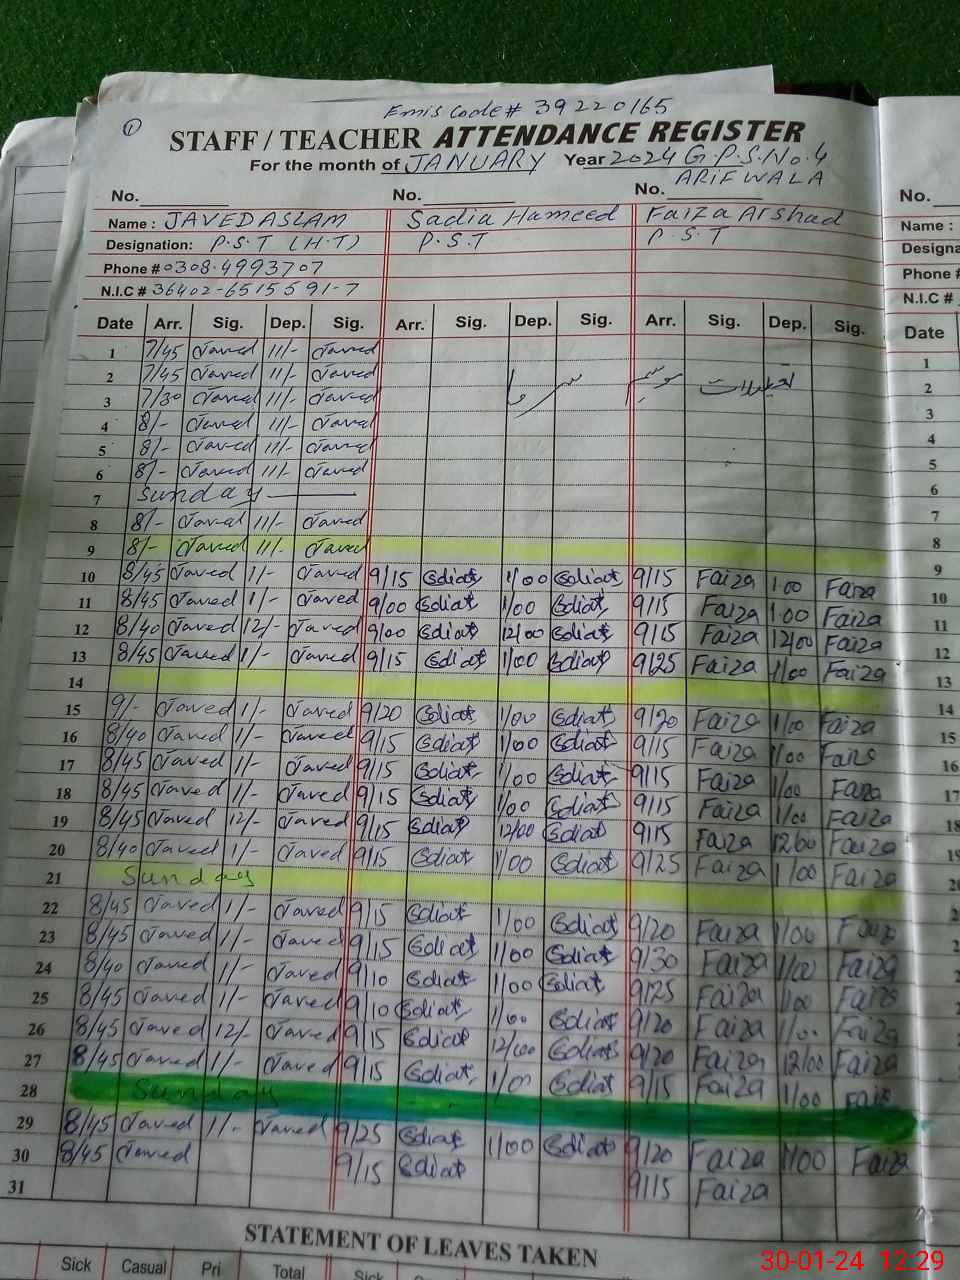 Emis Code # 39220165
① STAFF / TEACHER ATTENDANCE REGISTER
For the month of JANUARY Year 2024 G.P.S.No.4
ARIFWALA
No. No. No. No.
Name : JAVED ASLAM Sadia Hameed Faiza Arshad Name :
Designation: P.S.T (H.T) P.S.T P.S.T Designa
Phone # 0308-4993707 Phone #
N.I.C # 36402-6515591-7 N.I.C #
Date Arr. Sig. Dep. Sig. Arr. Sig. Dep. Sig. Arr. Sig. Dep. Sig. Date
1 7/45 Javed 11/- Javed 1
2 7/45 Javed 11/- Javed موسم سرما تعطیلات 2
3 7/30 Javed 11/- Javed 3
4 8/- Javed 11/- Javed 4
5 8/- Javed 11/- Javed 5
6 8/- Javed 11/- Javed 6
7 Sunday 7
8 8/- Javed 11/- Javed 8
9 8/- Javed 11/- Javed 9
10 8/45 Javed 1/- Javed 9/15 1/00 9/15 Faiza 1.00 Faiza 10
11 8/45 Javed 1/- Javed 9/00 1/00 9/15 Faiza 1.00 Faiza 11
12 8/40 Javed 12/- Javed 9/00 12/00 9/15 Faiza 12/00 Faiza 12
13 8/45 Javed 1/- Javed 9/15 1/00 9/25 Faiza 1/00 Faiza 13
14 14
15 9/- Javed 1/- Javed 9/20 1/00 9/20 Faiza 1/00 Faiza 15
16 8/40 Javed 1/- Javed 9/15 1/00 9/15 Faiza 1/00 Faiza 16
17 8/45 Javed 1/- Javed 9/15 1/00 9/15 Faiza 1/00 Faiza 17
18 8/45 Javed 1/- Javed 9/15 1/00 9/15 Faiza 1/00 Faiza 18
19 8/45 Javed 12/- Javed 9/15 12/00 9/15 Faiza 12/00 Faiza 19
20 8/40 Javed 1/- Javed 9/15 1/00 9/25 Faiza 1/00 Faiza
21 Sunday
22 8/45 Javed 1/- Javed 9/15 1/00 9/20 Faiza 1/00 Faiza
23 8/45 Javed 1/- Javed 9/15 1/00 9/30 Faiza 1/00 Faiza
24 8/40 Javed 1/- Javed 9/10 1/00 9/25 Faiza 1/00 Faiza
25 8/45 Javed 1/- Javed 9/10 1/00 9/20 Faiza 1/00 Faiza
26 8/45 Javed 12/- Javed 9/15 12/00 9/20 Faiza 12/00 Faiza
27 8/45 Javed 1/- Javed 9/15 1/00 9/15 Faiza 1/00 Faiza
28 Sunday
29 8/45 Javed 1/- Javed 9/25 1/00 9/20 Faiza 1/00 Faiza
30 8/45 Javed 9/15 9/15 Faiza
31
STATEMENT OF LEAVES TAKEN
Sick Casual Pri Total Sick
30-01-24 12:29